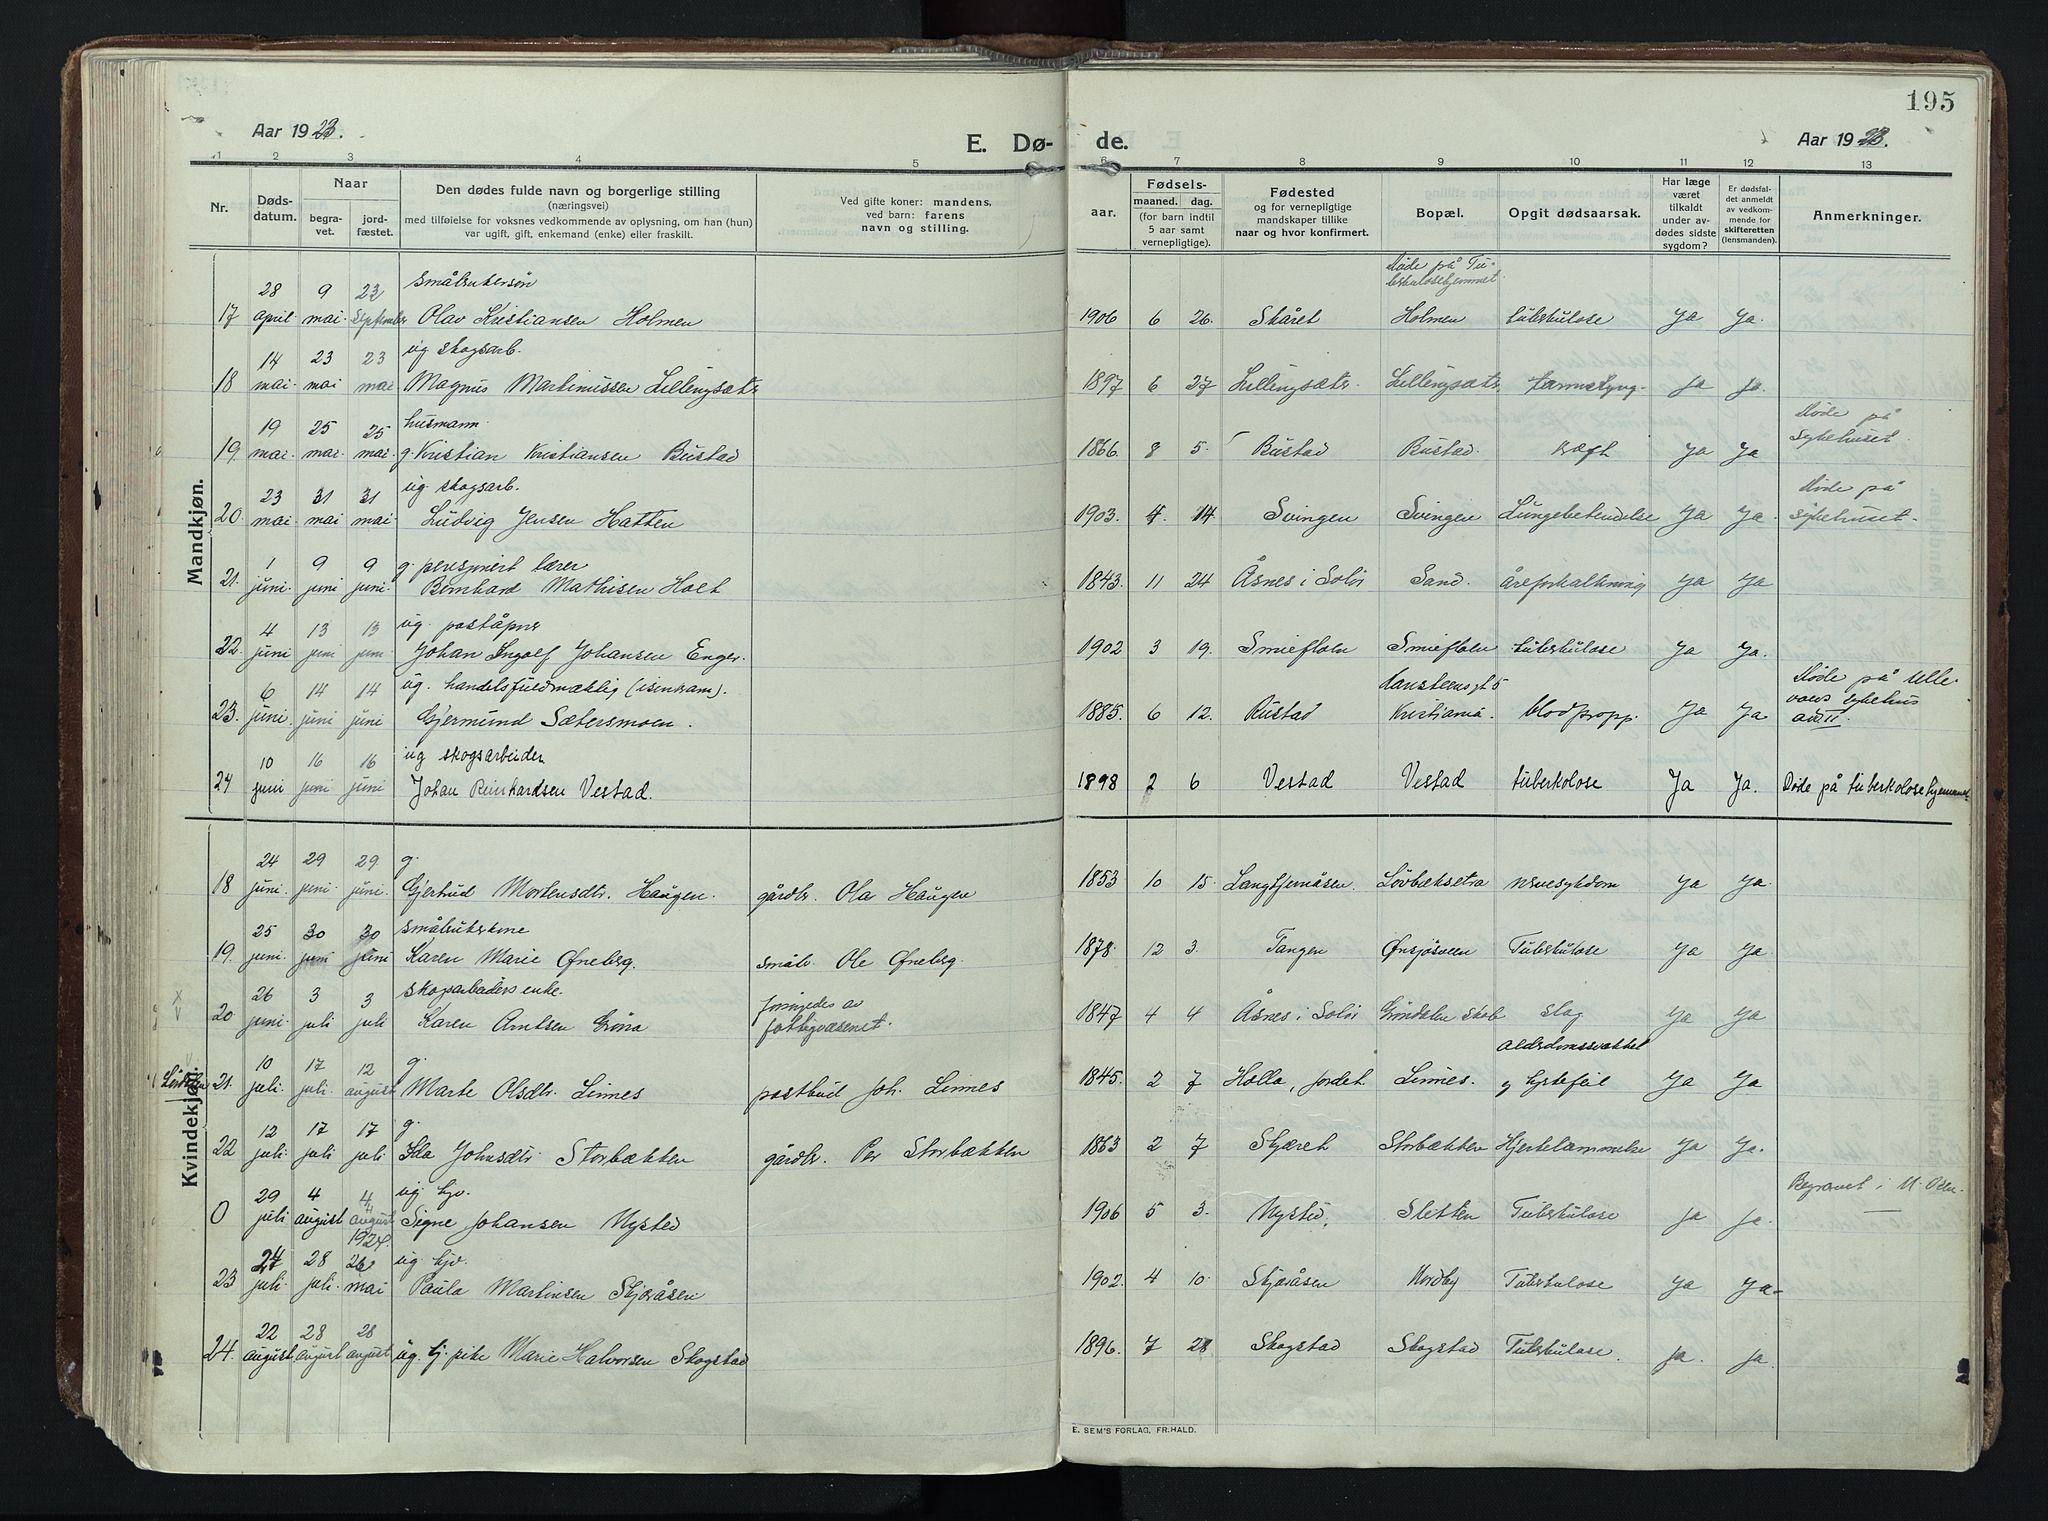 195
Aar 1923.
E. Dø-
de.
Aar 1923.
1 2 3 4 5 6 7 8 9 10 11 12 13
Nr.
Døds-
datum.
Naar
begra-
vet.
jord-
fæstet.
Den dødes fulde navn og borgerlige stilling
(næringsvei)
med tilføielse for voksnes vedkommende av oplysning, om han (hun)
var ugift, gift, enkemand (enke) eller fraskilt.
Ved gifte koner: mandens,
ved barn: farens
navn og stilling.
Fødsels-
aar.
maaned. dag.
(for barn indtil
5 aar samt
vernepligtige).
Fødested
og for vernepligtige
mandskaper tillike
naar og hvor konfirmert.
Bopæl.
Opgit dødsaarsak.
Har læge
været
tilkaldt
under av-
dødes sidste
sygdom?
Er dødsfal-
det anmeldt
av vedkom-
mende for
skifteretten
(lensmanden).
Anmerkninger.
Mandkjøn.
28 9 23 småbrukersøn Døde på Tu-
berkulosehjemmet
17 april. mai. September Olav Kristiansen Holmen 1906 6 26. Skåret Holmen tuberkulose Ja Ja.
14 23 23 ug skogsarb.
18 mai. mai mai Magnus Martinussen Lillengsætr 1897 6 27 Lillengsætr. Lillengsætr. Ja Ja.
19 25 25 husmann. Døde på
19. mai. mai. mai. g. Kristian Kristiansen Bustad 1866. 8 5. Bustad Bustad. kræft Ja Ja sykehuset.
23 31 31 ug. skogsarb. Døde på
20. mai mai mai. Ludvig Jensen Hatten 1903. 4. 14 Svingen Svingen Lungebetendelse Ja Ja. sykehuset.
1 9 9 g. pensjonert lærer
21. juni. juni juni. Bernhard Mathisen Holt 1843. 11 24 Åsnes i Solør Sand. åreforkalkning Ja Ja
4 13 13 ug. poståpner
22. juni juni juni Johan Ingolf Johansen Enger. 1902 3 19. Smiefloen Smiefloen tuberkulose Ja Ja.
6 14 14 ug. handelsfuldmæktig (isenkram). Hansteensgt 5 Døde på Ulle-
23. juni. juni juni Gjermund Sætersmoen. 1885. 6 12. Rustad Kristiania. blodpropp. Ja Ja vaals sykehus
avd II.
10 16 16 ug skogsarbeider
24 juni juni juni Johan Reinhardsen Vestad. 1898 2 6 Vestad Vestad tuberkolose Ja Ja. Døde på tuberkolosehjemmet
Kvindekjøn.
24 29 29 g.
18 juni. juni. juni. Gjertrud Mortensdtr. Haugen. gårdbr. Ola Haugen 1853 10 15. Langtjernåsen. Løvbæksetra nervesykdom Ja Ja.
25 30 30 småbrukerkone
19. juni. juni juni Karen Marie Øneberg. småbr. Ole Øneberg. 1878. 12 3. Tangen Ønsjøsveen Tuberkulose Ja Ja
26 3 3 skogsarbeiders enke. forsørgedes av
20 juni. juli juli Karen Arntsen Gröna fattigvæsenet. 1847 4 4 Åsnes i Solør Gröndalen skole Slag Ja Ja
10 17 12 g. Alderdomssvækkel
21. juli. juli. august Marte Olsdtr. Linnes postbud Joh. Linnes 1845. 2 7 Holla, Jordet Linnes. og hjertefeil Ja Ja
12 17 17 g.
22 juli. juli. juli Ida Johnsdtr. Storbækken gårdbr. Per Storbækken 1863 2 7 Skjæret Storbækken Hjertelammelse Ja Ja.
29 4 4 ug. hjv. Begravet i N. Osen.
0 juli august august Signe Johansen Nysted 1906 5 3. Nysted, Sletten Tuberkulose Ja Ja.
1924.
24 28 26 ug. hjv.
23 juli. juli. mai Paula Martinsen Skjæråsen 1902. 4 10. Skjæråsen Nordby Tuberkulose Ja Ja
22 28 28
24. august august august ug. tj. pike Marie Halvorsen Skogstad 1896. 7 28 Skogstad Skogstad Tuberkulose. Ja. Ja.
E. SEM'S FORLAG, FR.HALD.